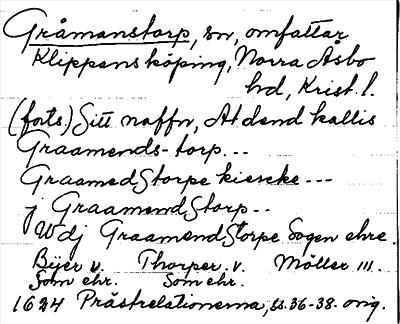 Gråmanstorp, sn, omfattar
Klippans köping, Norra Åsbo
hd, Krist. l.
(forts.) Sitt naffn, At dend kallis
Graamends-torp...
GraamedStorpe kiercke ---
j GraamendStorp--
Wdj GraamendStorpe Sogen ehre
Byer v. Thorper v. Möller III.
Som ehr. Som ehr.
1624 Prästrelationerna, ss. 36-38. orig.